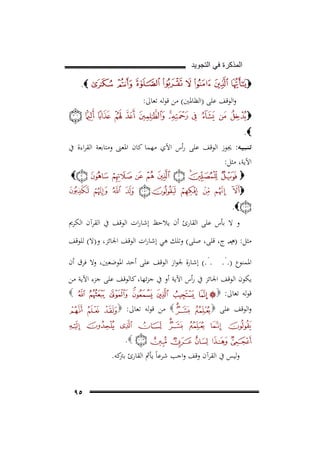 المذكرة في التجويد
﴿يَا أَيُّهَا الَّذِينَ آمَنُوا لَا تَقْرَبُوا الصَّلَاةَ وَأَنتُمْ سُكَارَىٰ﴾.
والوقف على (الظالمين) من قوله تعالى:
﴿يُدْخِلُ مَن يَشَاءُ فِي رَحْمَتِهِ وَالظَّالِمِينَ أَعَدَّ لَهُمْ عَذَابًا أَلِيمًا
﴾.
تنبيه: يجوز الوقف على رأس الآي مهما كان المعنى ومتابعة القراءة في
الآية، مثل:
﴿فَوَيْلٌ لِّلْمُصَلِّينَ الَّذِينَ هُمْ عَن صَلَاتِهِمْ سَاهُونَ﴾
﴿أَلَا إِنَّهُم مِّنْ إِفْكِهِمْ لَيَقُولُونَ وَلَدَ اللَّهُ وَإِنَّهُمْ لَكَاذِبُونَ
﴾.
و لا بأس على القارئ أن يلاحظ إشارات الوقف في القرآن الكريم
مثل: (م، ج، قلى، صلى) وتلك هي إشارات الوقف الجائز، و(لا) للوقف
الممنوع (.∴. ∴.) إشارة لجواز الوقف على أحد الموضعين، ولا فرق أن
يكون الوقف الجائز في رأس الآية أو في جزئها، كالوقف على جزء الآية من
قوله تعالى: ﴿إِنَّمَا يَسْتَجِيبُ الَّذِينَ يَسْمَعُونَ وَالْمَوْتَىٰ يَبْعَثُهُمُ اللَّهُ﴾
والوقف على ﴿يُعَلِّمُهُ بَشَرٌ﴾ من قوله تعالى: ﴿وَلَقَدْ نَعْلَمُ أَنَّهُمْ
يَقُولُونَ إِنَّمَا يُعَلِّمُهُ بَشَرٌ لِّسَانُ الَّذِي يُلْحِدُونَ إِلَيْهِ
أَعْجَمِيٌّ وَهَٰذَا لِسَانٌ عَرَبِيٌّ مُّبِينٌ﴾.
وليس في القرآن وقف واجب شرعاً يأثم القارئ بتركه.
٩٥